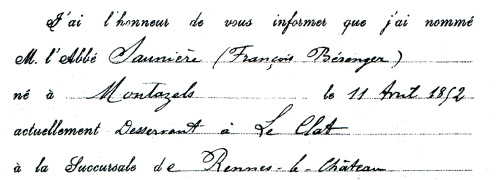 J'ai l'honneur de vous informer que j'ai nommé
M. l'Abbé Saunière (François Bérenger)
né à Montazels le 11 Avril 1852
actuellement Desservant à Le Clat
à la Succursale de Rennes-le-Château